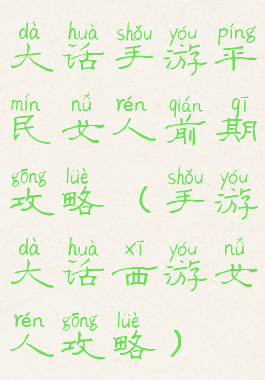 dà huà shǒu yóu píng
大话手游平
mín nǚ rén qián qī
民女人前期
gōng lüè shǒu yóu
攻略（手游
dà huà xī yóu nǚ
大话西游女
rén gōng lüè
人攻略）